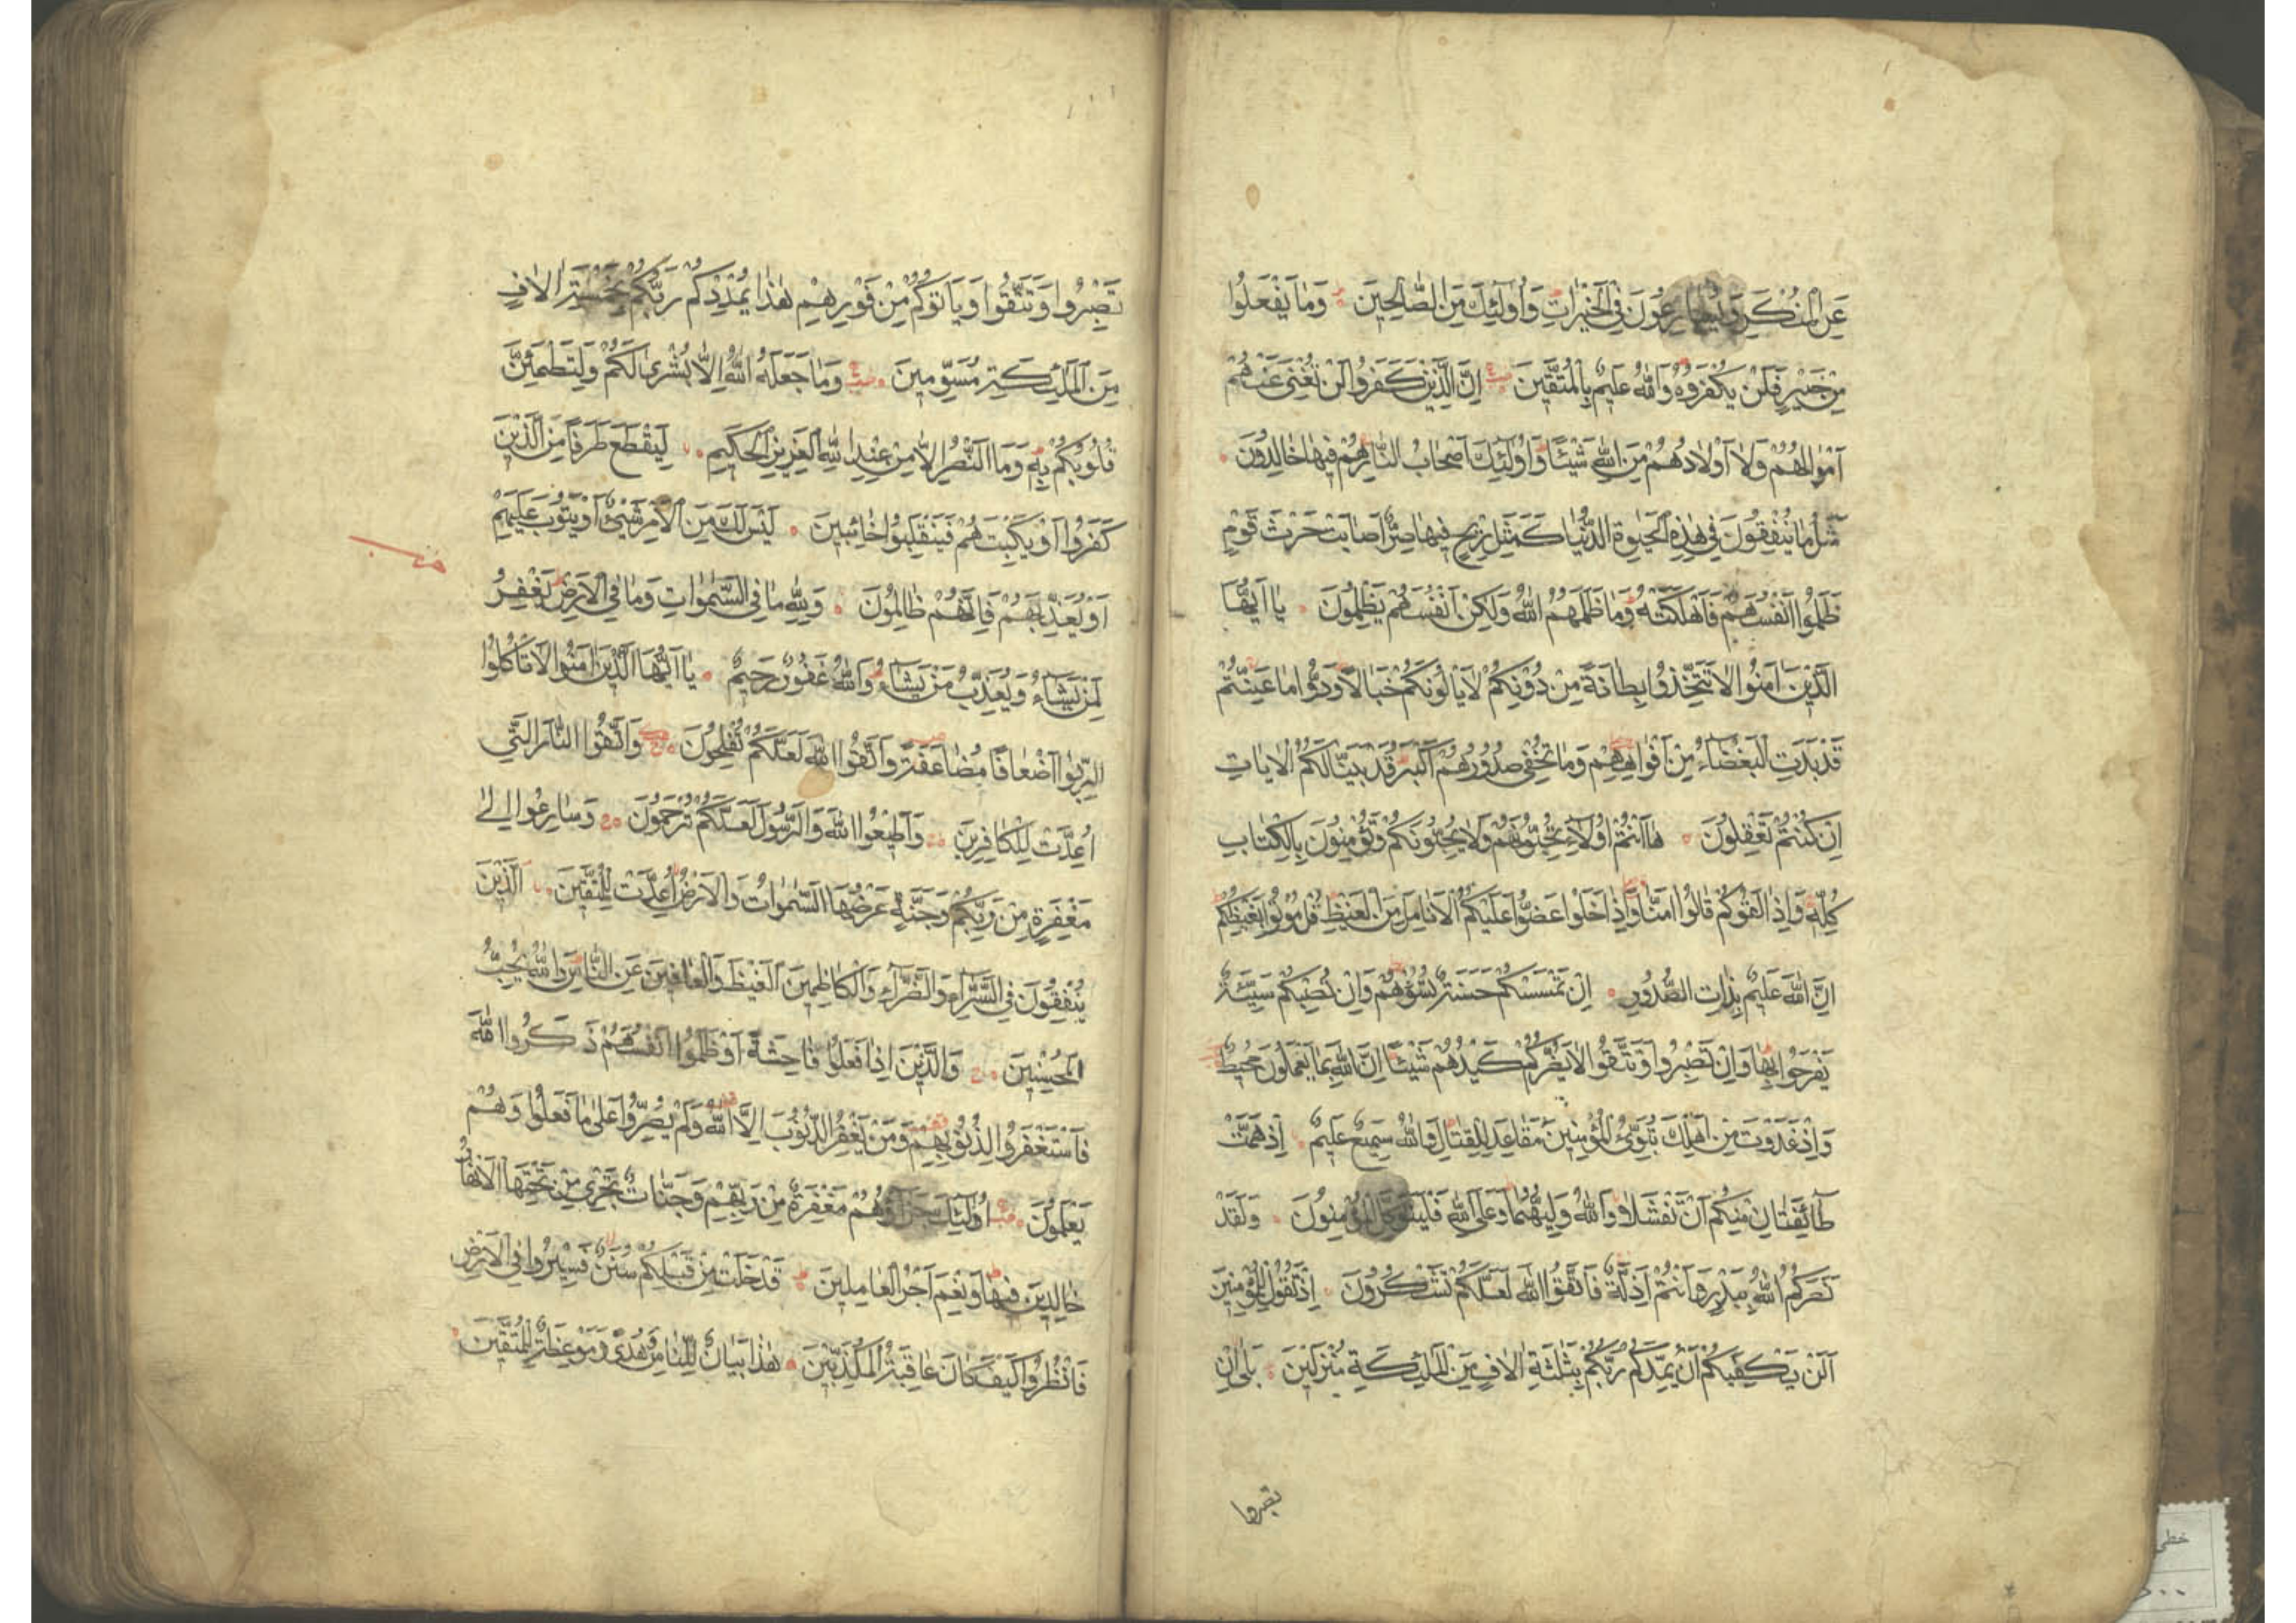 عَنِ الْمُنْكَرِ وَيُسَارِعُونَ فِي الْخَيْرَاتِ وَأُولَئِكَ مِنَ الصَّالِحِينَ وَمَا يَفْعَلُوا
مِنْ خَيْرٍ فَلَنْ يُكْفَرُوهُ وَاللّٰهُ عَلِيمٌ بِالْمُتَّقِينَ اِنَّ الَّذِينَ كَفَرُوا لَنْ تُغْنِيَ عَنْهُمْ
اَمْوَالُهُمْ وَلَا اَوْلَادُهُمْ مِنَ اللّٰهِ شَيْئًا وَاُولٰئِكَ اَصْحَابُ النَّارِ هُمْ فِيهَا خَالِدُونَ
مَثَلُ مَا يُنْفِقُونَ فِي هٰذِهِ الْحَيٰوةِ الدُّنْيَا كَمَثَلِ رِيحٍ فِيهَا صِرٌّ اَصَابَتْ حَرْثَ قَوْمٍ
ظَلَمُوا اَنْفُسَهُمْ فَاَهْلَكَتْهُ وَمَا ظَلَمَهُمُ اللّٰهُ وَلٰكِنْ اَنْفُسَهُمْ يَظْلِمُونَ يَا اَيُّهَا
الَّذِينَ اٰمَنُوا لَا تَتَّخِذُوا بِطَانَةً مِنْ دُونِكُمْ لَا يَأْلُونَكُمْ خَبَالًا وَدُّوا مَا عَنِتُّمْ
قَدْ بَدَتِ الْبَغْضَاءُ مِنْ اَفْوَاهِهِمْ وَمَا تُخْفِي صُدُورُهُمْ اَكْبَرُ قَدْ بَيَّنَّا لَكُمُ الْاٰيَاتِ
اِنْ كُنْتُمْ تَعْقِلُونَ هَا اَنْتُمْ اُولَاءِ تُحِبُّونَهُمْ وَلَا يُحِبُّونَكُمْ وَتُؤْمِنُونَ بِالْكِتَابِ
كُلِّهِ وَاِذَا لَقُوكُمْ قَالُوا اٰمَنَّا وَاِذَا خَلَوْا عَضُّوا عَلَيْكُمُ الْاَنَامِلَ مِنَ الْغَيْظِ قُلْ مُوتُوا بِغَيْظِكُمْ
اِنَّ اللّٰهَ عَلِيمٌ بِذَاتِ الصُّدُورِ اِنْ تَمْسَسْكُمْ حَسَنَةٌ تَسُؤْهُمْ وَاِنْ تُصِبْكُمْ سَيِّئَةٌ
يَفْرَحُوا بِهَا وَاِنْ تَصْبِرُوا وَتَتَّقُوا لَا يَضُرُّكُمْ كَيْدُهُمْ شَيْئًا اِنَّ اللّٰهَ بِمَا يَعْمَلُونَ مُحِيطٌ
وَاِذْ غَدَوْتَ مِنْ اَهْلِكَ تُبَوِّئُ الْمُؤْمِنِينَ مَقَاعِدَ لِلْقِتَالِ وَاللّٰهُ سَمِيعٌ عَلِيمٌ اِذْ هَمَّتْ
طَائِفَتَانِ مِنْكُمْ اَنْ تَفْشَلَا وَاللّٰهُ وَلِيُّهُمَا وَعَلَى اللّٰهِ فَلْيَتَوَكَّلِ الْمُؤْمِنُونَ وَلَقَدْ
نَصَرَكُمُ اللّٰهُ بِبَدْرٍ وَاَنْتُمْ اَذِلَّةٌ فَاتَّقُوا اللّٰهَ لَعَلَّكُمْ تَشْكُرُونَ اِذْ تَقُولُ لِلْمُؤْمِنِينَ
اَلَنْ يَكْفِيَكُمْ اَنْ يُمِدَّكُمْ رَبُّكُمْ بِثَلٰثَةِ اٰلَافٍ مِنَ الْمَلٰئِكَةِ مُنْزَلِينَ بَلٰى اِنْ
تصبروا
تَصْبِرُوا وَتَتَّقُوا وَيَأْتُوكُمْ مِنْ فَوْرِهِمْ هٰذَا يُمْدِدْكُمْ رَبُّكُمْ بِخَمْسَةِ اٰلَافٍ
مِنَ الْمَلٰئِكَةِ مُسَوِّمِينَ وَمَا جَعَلَهُ اللّٰهُ اِلَّا بُشْرٰى لَكُمْ وَلِتَطْمَئِنَّ
قُلُوبُكُمْ بِهِ وَمَا النَّصْرُ اِلَّا مِنْ عِنْدِ اللّٰهِ الْعَزِيزِ الْحَكِيمِ لِيَقْطَعَ طَرَفًا مِنَ الَّذِينَ
كَفَرُوا اَوْ يَكْبِتَهُمْ فَيَنْقَلِبُوا خَائِبِينَ لَيْسَ لَكَ مِنَ الْاَمْرِ شَيْءٌ اَوْ يَتُوبَ عَلَيْهِمْ
اَوْ يُعَذِّبَهُمْ فَاِنَّهُمْ ظَالِمُونَ وَلِلّٰهِ مَا فِي السَّمٰوَاتِ وَمَا فِي الْاَرْضِ يَغْفِرُ
لِمَنْ يَشَاءُ وَيُعَذِّبُ مَنْ يَشَاءُ وَاللّٰهُ غَفُورٌ رَحِيمٌ يَا اَيُّهَا الَّذِينَ اٰمَنُوا لَا تَأْكُلُوا
الرِّبٰوا اَضْعَافًا مُضَاعَفَةً وَاتَّقُوا اللّٰهَ لَعَلَّكُمْ تُفْلِحُونَ وَاتَّقُوا النَّارَ الَّتِي
اُعِدَّتْ لِلْكَافِرِينَ وَاَطِيعُوا اللّٰهَ وَالرَّسُولَ لَعَلَّكُمْ تُرْحَمُونَ وَسَارِعُوا اِلٰى
مَغْفِرَةٍ مِنْ رَبِّكُمْ وَجَنَّةٍ عَرْضُهَا السَّمٰوَاتُ وَالْاَرْضُ اُعِدَّتْ لِلْمُتَّقِينَ الَّذِينَ
يُنْفِقُونَ فِي السَّرَّاءِ وَالضَّرَّاءِ وَالْكَاظِمِينَ الْغَيْظَ وَالْعَافِينَ عَنِ النَّاسِ وَاللّٰهُ يُحِبُّ
الْمُحْسِنِينَ وَالَّذِينَ اِذَا فَعَلُوا فَاحِشَةً اَوْ ظَلَمُوا اَنْفُسَهُمْ ذَكَرُوا اللّٰهَ
فَاسْتَغْفَرُوا لِذُنُوبِهِمْ وَمَنْ يَغْفِرُ الذُّنُوبَ اِلَّا اللّٰهُ وَلَمْ يُصِرُّوا عَلٰى مَا فَعَلُوا وَهُمْ
يَعْلَمُونَ اُولٰئِكَ جَزَاؤُهُمْ مَغْفِرَةٌ مِنْ رَبِّهِمْ وَجَنَّاتٌ تَجْرِي مِنْ تَحْتِهَا الْاَنْهَارُ
خَالِدِينَ فِيهَا وَنِعْمَ اَجْرُ الْعَامِلِينَ قَدْ خَلَتْ مِنْ قَبْلِكُمْ سُنَنٌ فَسِيرُوا فِي الْاَرْضِ
فَانْظُرُوا كَيْفَ كَانَ عَاقِبَةُ الْمُكَذِّبِينَ هٰذَا بَيَانٌ لِلنَّاسِ وَهُدًى وَمَوْعِظَةٌ لِلْمُتَّقِينَ